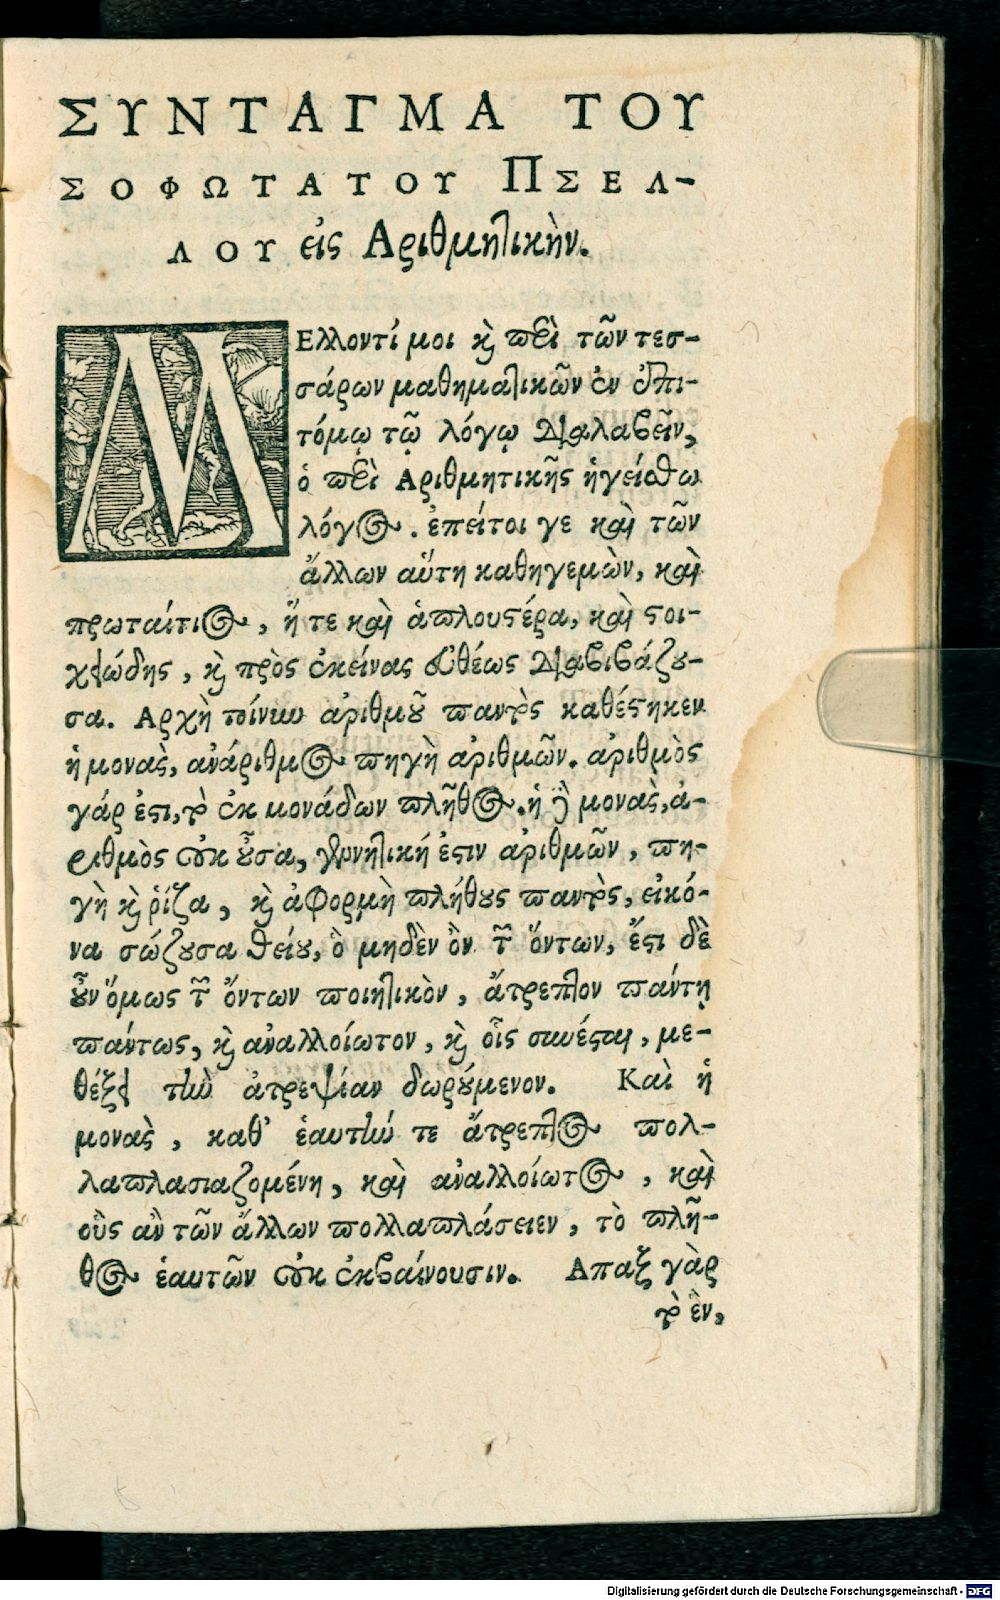 ΣΥΝΤΑΓΜΑ ΤΟΥ
ΣΟΦΩΤΑΤΟΥ ΠΣΕΛ-
ΛΟΥ εἰς Αριθμητικὴν.
ΜΕλλοντί μοι καὶ περὶ τῶν τεσ-
σάρων μαθηματικῶν ἐν ἐπι-
τόμῳ τῷ λόγῳ διαλαβεῖν,
ὁ περὶ Αριθμητικῆς ἡγείσθω
λόγος. ἐπείτοι γε καὶ τῶν
ἄλλων αὕτη καθηγεμὼν, καὶ
πρωταίτιος, ἥ τε καὶ ἁπλουστέρα, καὶ στοι-
χειώδης, καὶ πρὸς ἐκείνας εὐθέως διαβιβάζου-
σα. Αρχὴ τοίνυν ἀριθμοῦ παντὸς καθέστηκεν
ἡ μονὰς, ἀνάριθμος πηγὴ ἀριθμῶν. ἀριθμὸς
γάρ ἐστι, τὸ ἐκ μονάδων πλῆθος. ἡ δὲ μονὰς, ἀ-
ριθμὸς οὐκ οὖσα, γεννητική ἐστιν ἀριθμῶν, πη-
γὴ καὶ ῥίζα, καὶ ἀφορμὴ πλήθους παντὸς, εἰκό-
να σώζουσα θείου, ὃ μηδὲν ὂν τῶν ὄντων, ἔστι δὲ
οὖν ὅμως τῶν ὄντων ποιητικὸν, ἄτρεπτον πάντη
πάντως, καὶ ἀναλλοίωτον, καὶ οἷς συνέσται, με-
θέξει τὴν ἀτρεψίαν δωρούμενον. Καὶ ἡ
μονὰς, καθ’ ἑαυτήν τε ἄτρεπτος πολ-
λαπλασιαζομένη, καὶ ἀναλλοίωτος, καὶ
οὓς ἂν τῶν ἄλλων πολλαπλάσειεν, τὸ πλῆ-
θος ἑαυτῶν οὐκ ἐκβαίνουσιν. Απαξ γὰρ
τὸ ἓν,
Digitalisierung gefördert durch die Deutsche Forschungsgemeinschaft - DFG